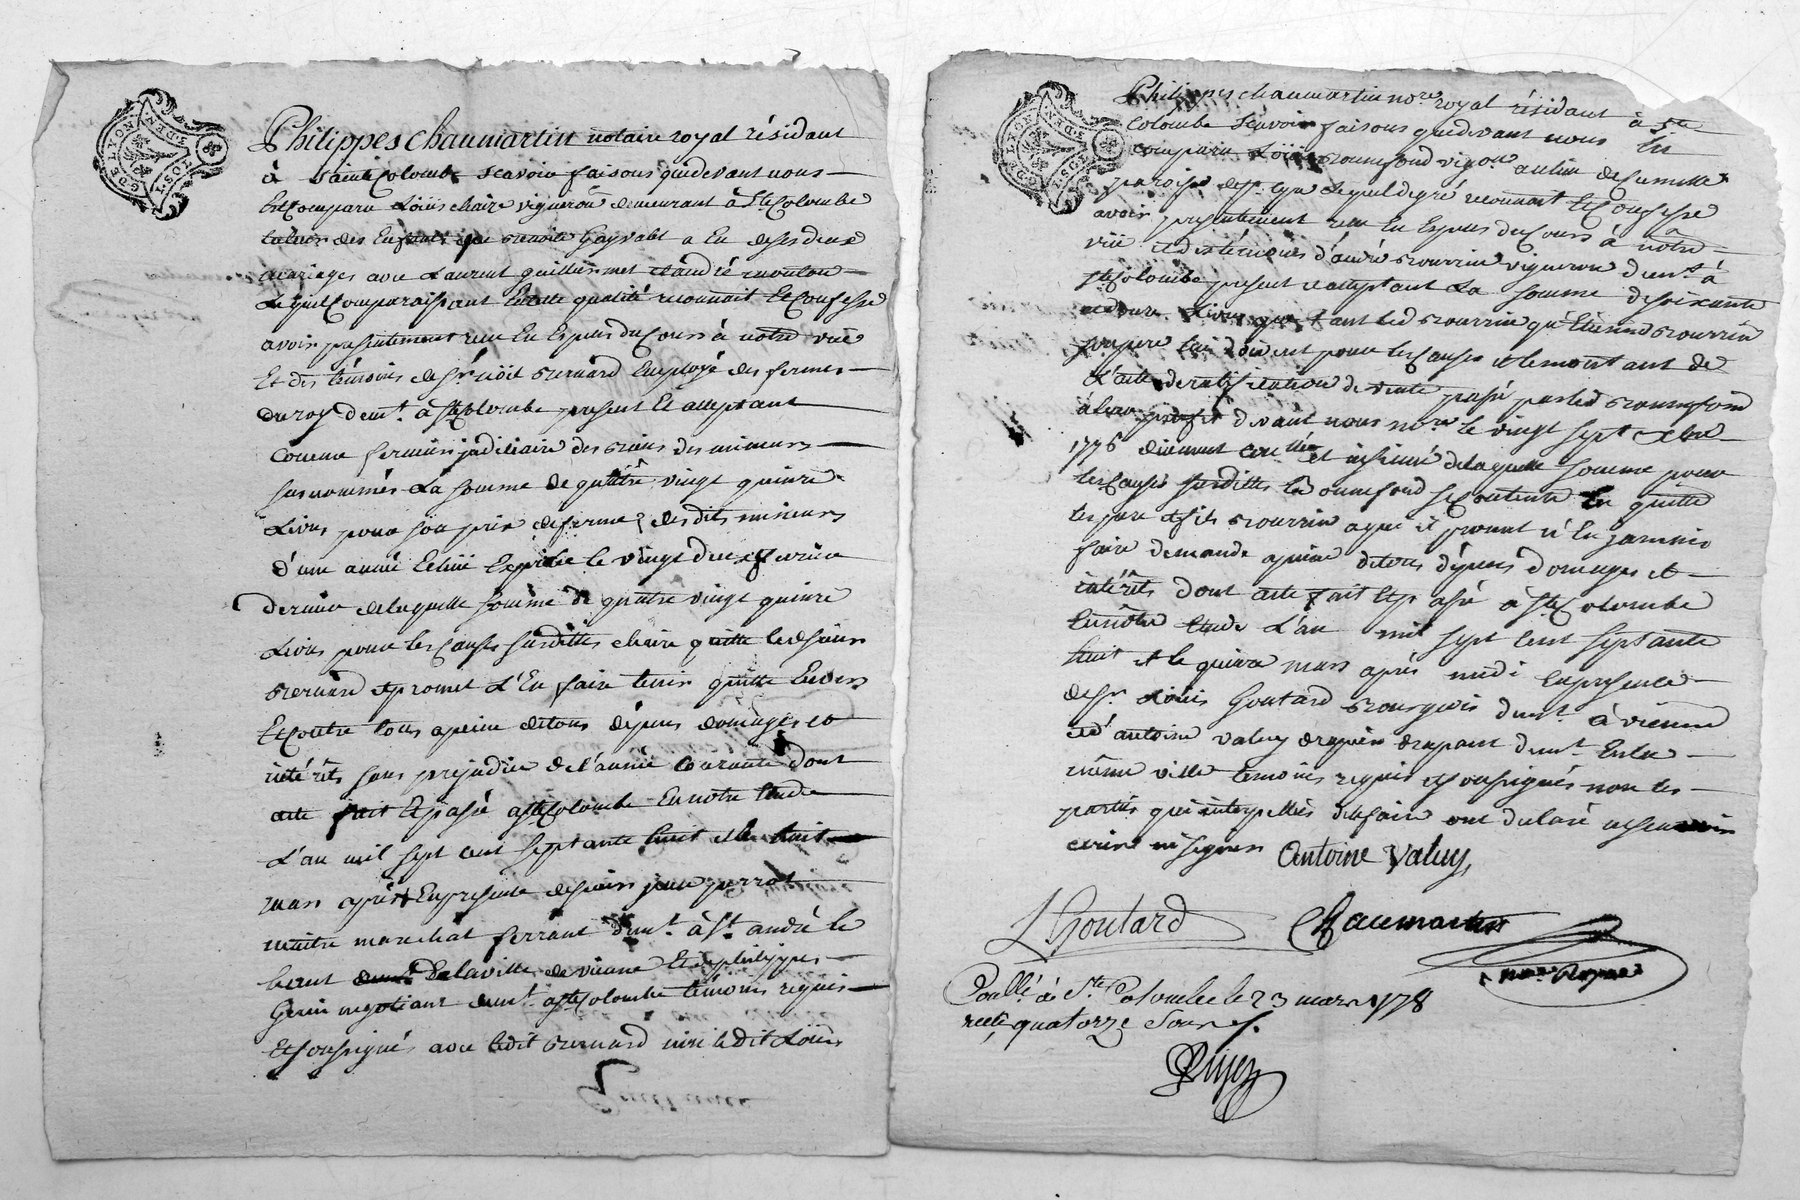 Philippes Chaumartin notaire royal résidant
à Sainte Colombe scavoir faisons que devant nous
Est Comparu Loüis chaire vigneron demeurant à Ste Colombe
tuteur des Enfants que benoite Gayvalet a Eu de ses deux
mariages avec Laurent guilliermet et andré mouton
Lequel Comparaissant En cette qualité reconnait Et Confesse
avoir presentement reçu En Espèces du Cours à notre vuë
Et des témoins de Sr noël bernard Employé des fermes
du roy demt. à Ste Colombe present Et acceptant
comme fermier judiciaire des biens des mineurs
susnommés La somme de quattre vingt quinze
Livres pour son prix de ferme desdits mineurs
d'une année Echüe Expirée le vingt deux fevrier
dernier de laquelle somme de quatre vingt quinze
Livres pour les causes susdittes chaire quitte led. sieur
bernard et promet L'En faire tenir quitte Envers
Et Contre tous a peine de tous dépens domages et
intérêts sans prejudice de l'année Courante dont
acte fait Et passé à Ste Colombe En notre Etude
L'an mil sept cent septante huit et le huit
mars après En presence de sieur jean perrot
maitre marechal ferrant demt. à St. andré le
haut de la ville de vienne Et de philippes
Guerin negotiant demt. à Ste Colombe témoins requis
Et soussignés avec ledit bernard non ledit Loüis
Philippes chaumartin nore royal résidant à Ste
Colombe scavoir faisons que devant nous Est
comparu Loüis bonnefond vigon au lieu de
paroisse de St. Cyr Lequel de gré reconnoit Et Confesse
avoir presentement reçu En Espèces du Cours à notre
vüe et des témoins d'andré bourrin vigneron demt. à
Ste Colombe present acceptant La somme de soixante
Livres que tant led. bourrin qu'Etienne bourrin
son pere lui doivent pour les causes et le montant de
L'acte de ratification de vente passé par led bonnefond
à leur profit devant nous nore le vingt sept
1776 düement conllé et insinué de laquelle somme pour
les Causes susdittes led bonnefond se contente En quitte
les pere et fils bourrin avec promet n'En jamais
faire demande a peine de tous dépens domages et
intérêts dont acte fait Et passé à Ste Colombe
En nôtre Etude L'an mil sept Cent septante
huit et le quinze mars après midi En presence
de Sr. Loüis Goutard bourgeois demt. à vienne
et d'antoine valuy drapier drapant demt. En la
même ville temoins requis et soussignés non les
parties qui interpellés de le faire ont declaré ne scavoir
ecrire ni signer Antoine Valuy,
LGoutard Chaumartin
nore Royal
Conllé à Ste Colombe le 23 mars 1778
reçu quatorze sous.